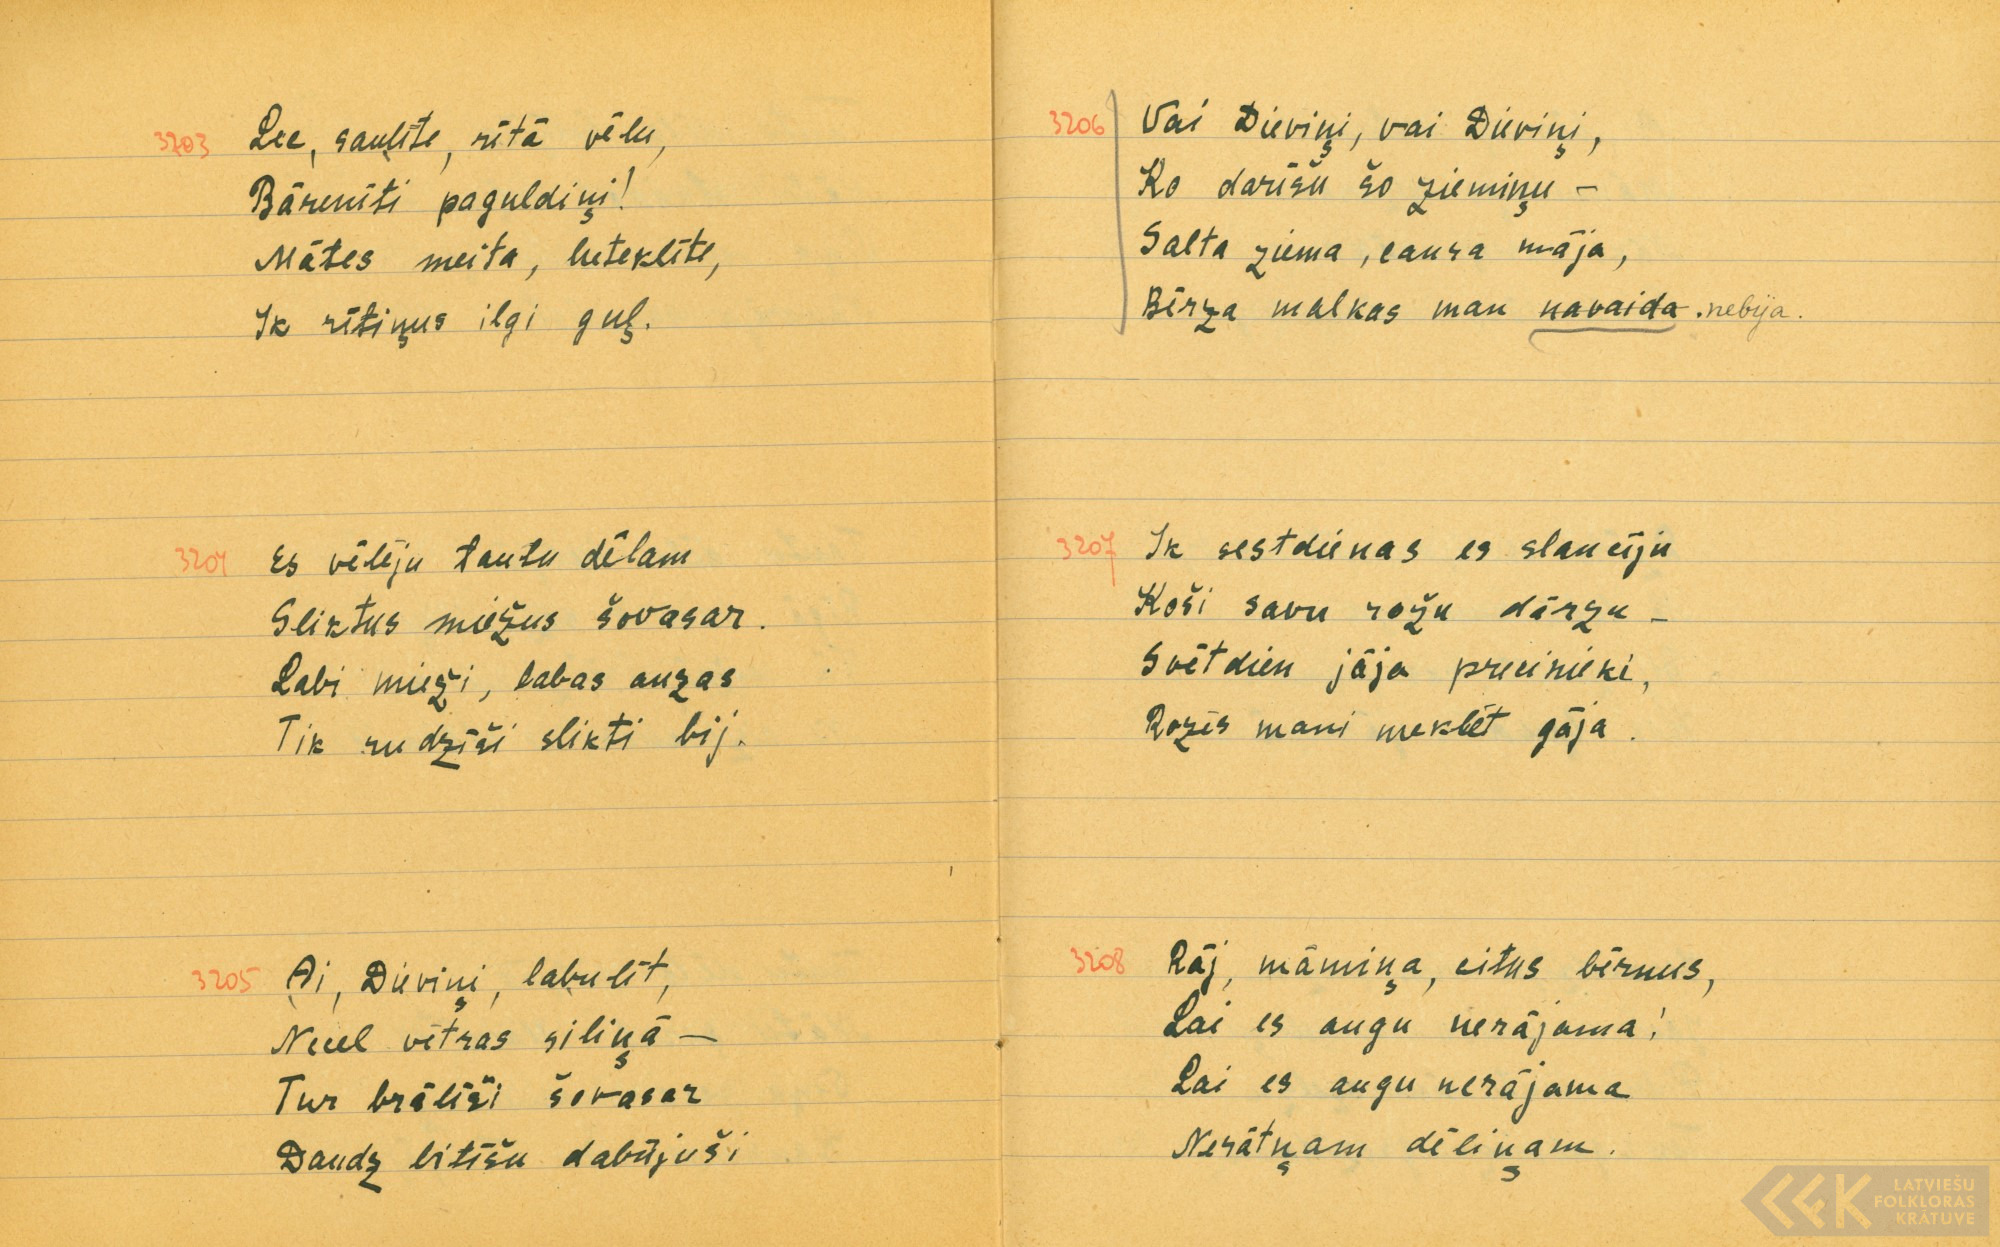 3203 Lec, saulīte, rītā vēlu,
Bārenīti paguldiņi!
Mātes meita, luteklīte,
Ik rītiņus ilgi guļ.
3204 Es vēlēju tautu dēlam
Sliktus miežus šovasar.
Labi mieži, labas auzas
Tik rudzīši slikti bij.
3205 Ai, Dieviņi, labulīt,
Neceļ vētras siliņā —
Tur brālīši šovasar
Daudz bitīšu dabūjuši
3206 Vai Dieviņi, vai Dieviņi,
Ko darīšu šo ziemiņu —
Salta ziema, caura māja,
Bērza malkas man navaida. nebija.
3207 Ik sestdienas es slaucīju
Koši savu rožu dārzu —
Svētdien jāja precinieki,
Rozēs mani meklēt gāja.
3208 Rāj, māmiņa, citus bērnus,
Lai es augu nerājama!
Lai es augu nerājama
Nerātņam dēliņam.
LATVIEŠU
FOLKLORAS
KRĀTUVE